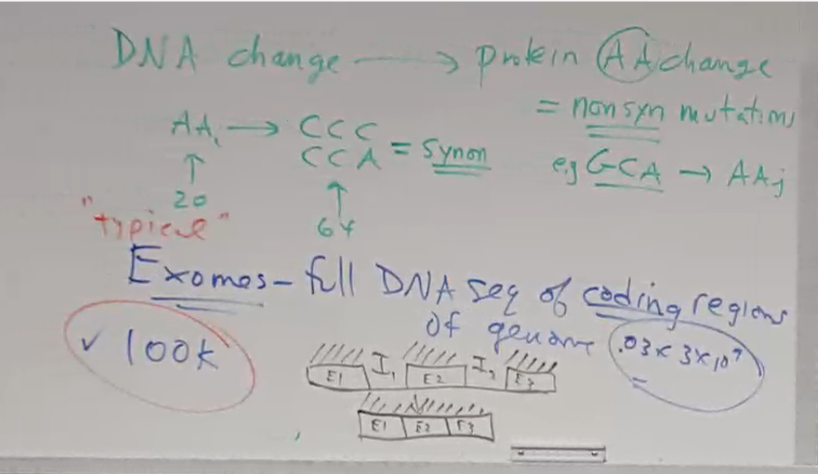 DNA change → protein AA change
= nonsyn mutations
AAi → CCC
CCA = Synon
e.g GCA → AAj
20
64
"typical"
Exomes - full DNA seq of coding regions
of genome
.03 x 3 x 10⁹
✓ 100k
E1 I1 E2 I2 E3
E1 E2 E3